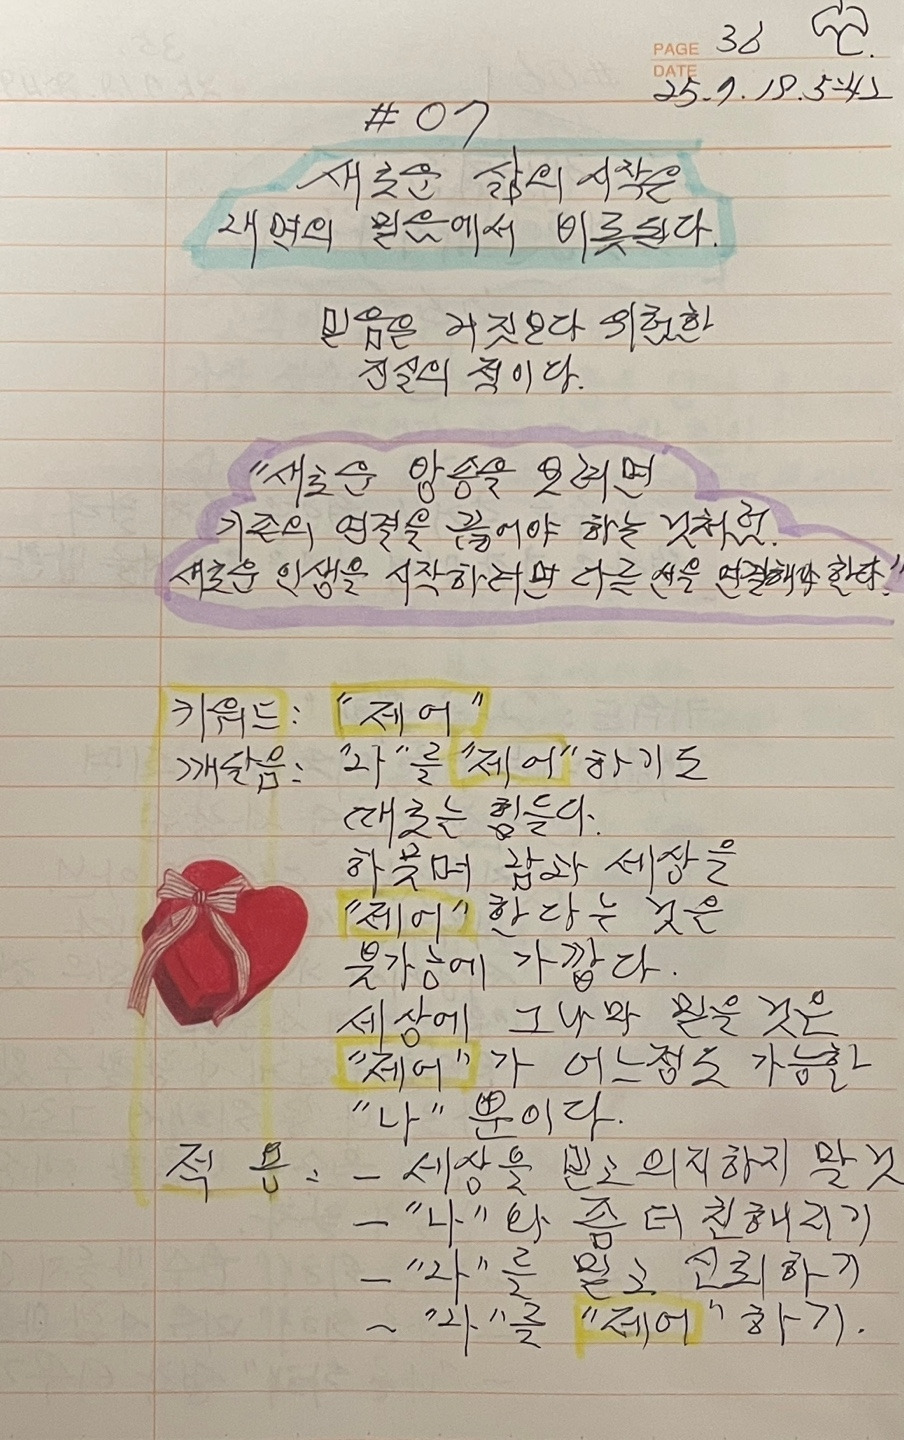 PAGE 36
DATE
25.9.18.5:42
#07
새로운 삶의 시작은
내면의 믿음에서 비롯된다.
믿음은 거짓보다 위험한
진실의 적이다.
"새로운 앞증을 보려면
기존의 연결을 끊어야 하는 것처럼,
새로운 인생을 시작하려면 다른 선을 연결해야 한다."
키워드: "제어"
깨달음: "나"를 "제어"하기도
때로는 힘들다.
하물며 남과 세상을
"제어"한다는 것은
불가능에 가깝다.
세상에 그나마 믿을 것은
"제어"가 어느정도 가능한
"나" 뿐이다.
적 용: - 세상을 믿고 의지하지 말 것
- "나"와 좀 더 친해지기
- "나"를 믿고 신뢰하기
- "나"를 "제어"하기.